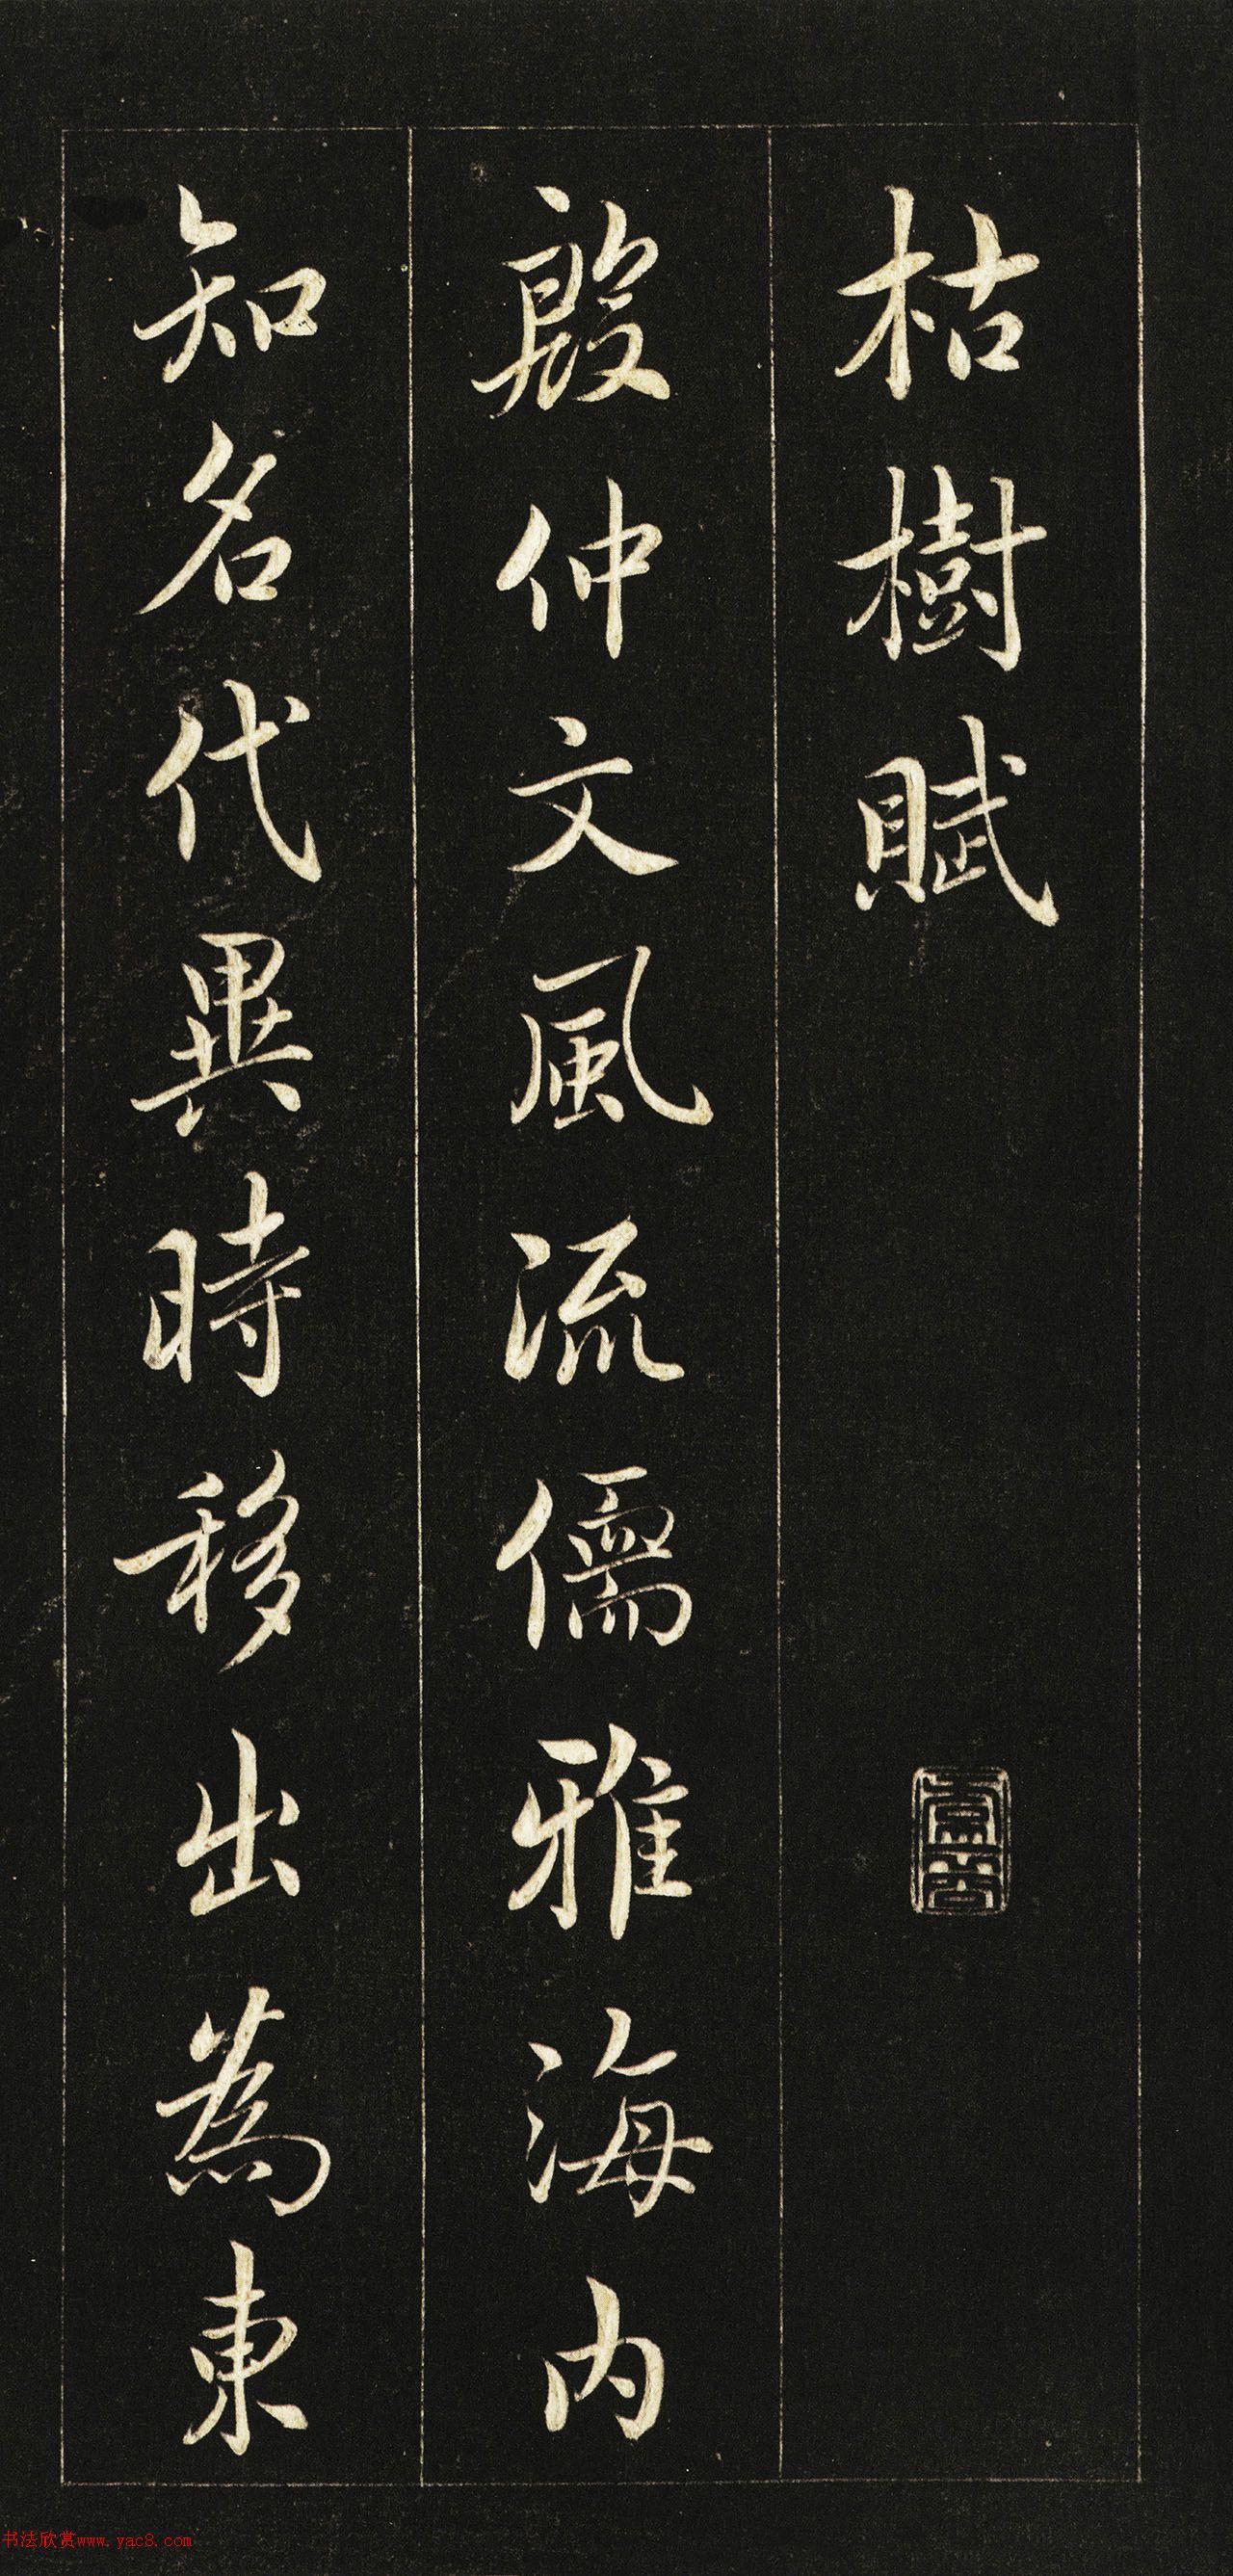 枯樹賦
殷仲文風流儒雅海内
知名代異時移出為東
书法欣赏www.yac8.com